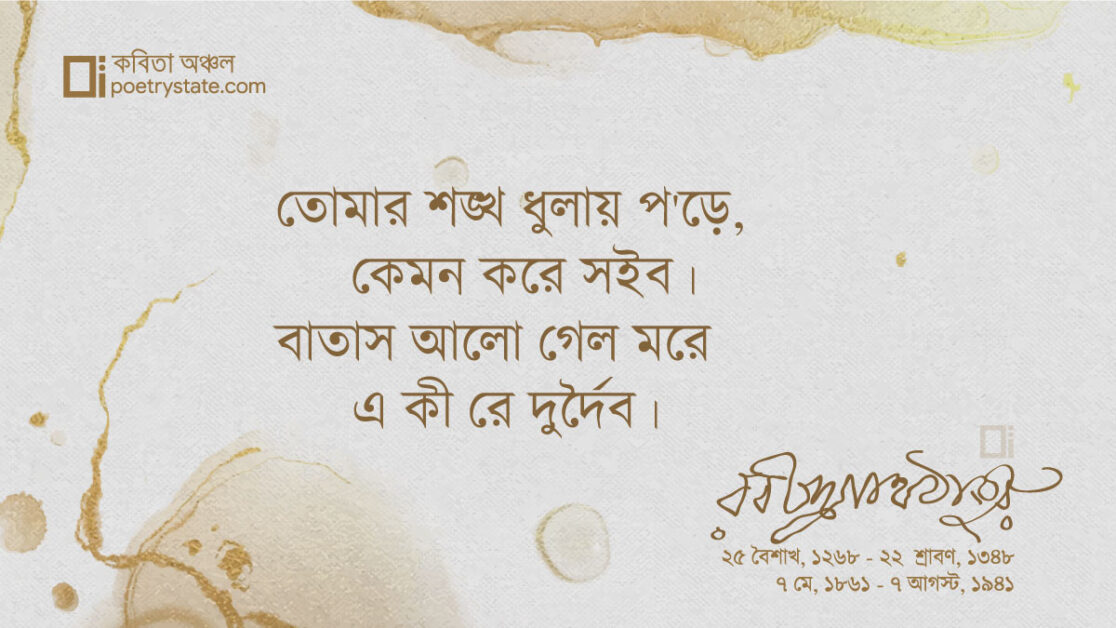 কবিতা অঞ্চল
poetrystate.com
তোমার শঙ্খ ধুলায় প'ড়ে,
কেমন করে সইব।
বাতাস আলো গেল মরে
এ কী রে দুর্দৈব।
রবীন্দ্রনাথ ঠাকুর
২৫ বৈশাখ, ১২৬৮ - ২২ শ্রাবণ, ১৩৪৮
৭ মে, ১৮৬১ - ৭ আগস্ট, ১৯৪১